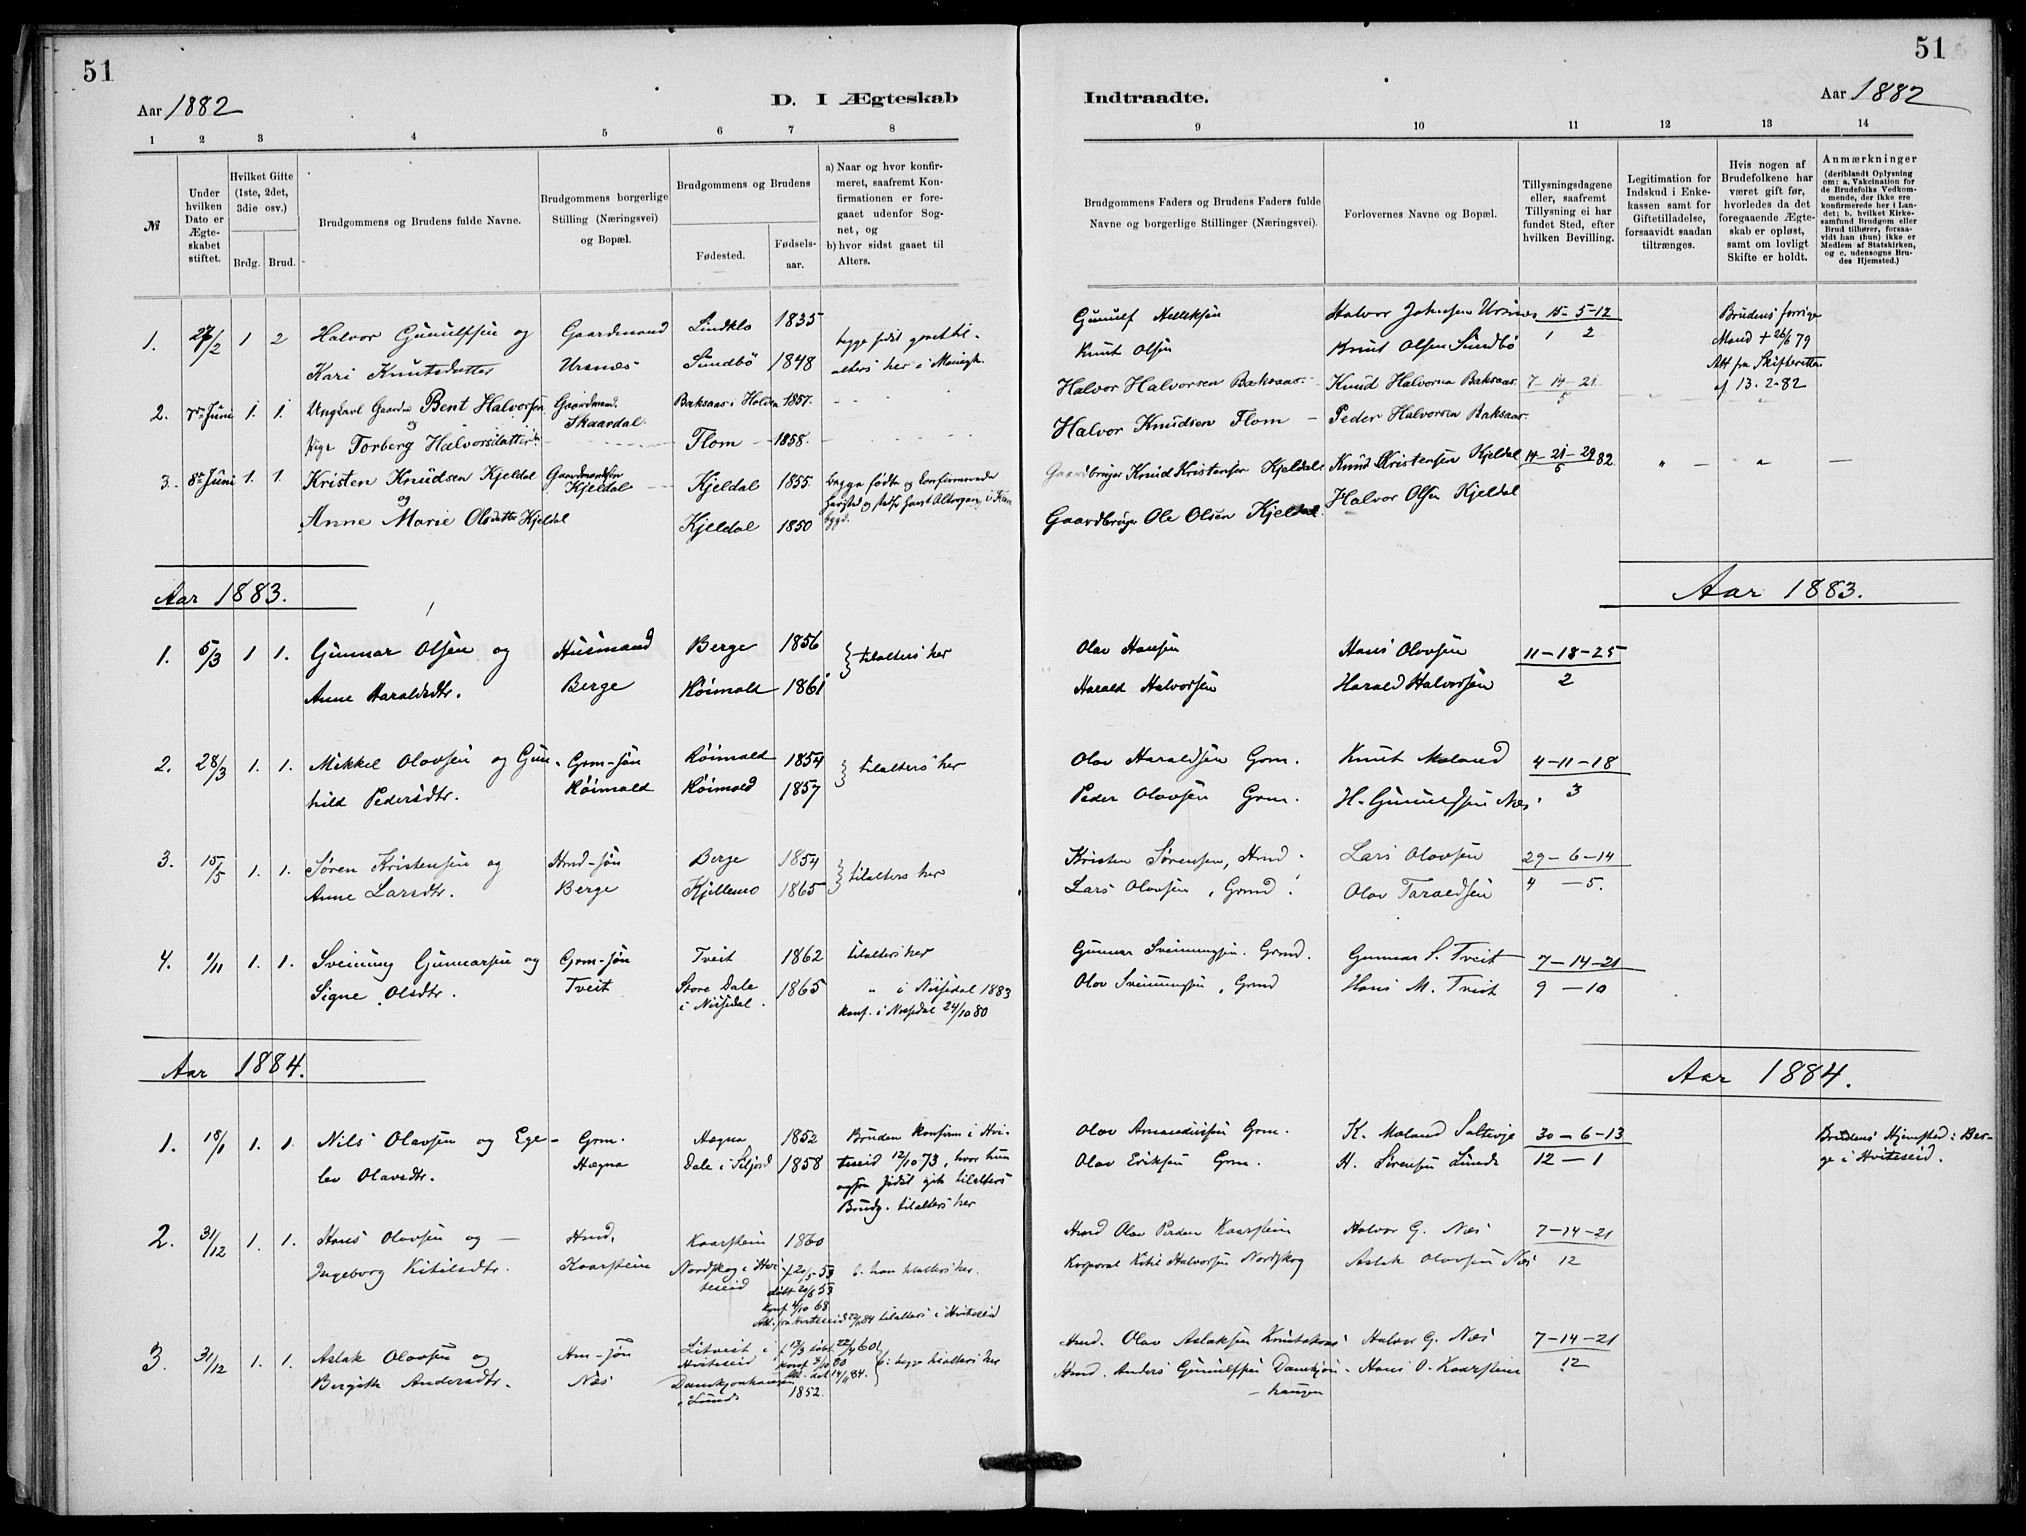 51
Aar 1882
D. I Ægteskab
1 2 3 4 5 6 7 8
№
Under hvilken Dato er Ægteskabet stiftet.
Hvilket Gifte (1ste, 2det, 3die osv.)
Brdg. Brud.
Brudgommens og Brudens fulde Navne.
Brudgommens borgerlige Stilling (Næringsvei) og Bopæl.
Brudgommens og Brudens
Fødested.
Fødselsaar.
a) Naar og hvor konfirmeret, saafremt Konfirmationen er foregaaet udenfor Sognet, og
b) hvor sidst gaaet til Alters.
1. 27/2 1 2 Halvor Gunulfsen og Gaardmand Lindklo 1835
Kari Knutsdatter Ursnæs Sundbö 1848
begge sidst gaaet til-
alters her i
2. 7de Juni 1. 1. Ungkarl Gaardm Bent Halvorsen Gaardmand. Baksaas i Holden 1857.
og Skaardal.
Pige Torberg Halvorsdatter Flom 1858.
3. 8de Juni 1. 1. Kristen Knudsen Kjeldal Gaardmandssøn Kjeldal 1855. Begge fødte og konfirmerede
og Kjeldal
Anne Marie Olsdatter Kjeldal Kjeldal 1850
Aar 1883.
1. 5/3 1 1. Gunnar Olsen og Husmand Berge 1856 tilalters her
Anne Haraldsdtr. Berge Röimald 1861
2. 28/3 1. 1. Mikkel Olovsen og Gun- Grm-sön Röimald 1854 tilalters her
hild Pedersdtr. Röimald Röimald 1857
3. 15/5 1. 1. Søren Kristensen og Hmd-sön Berge 1854 tilalters her
Anne Larsdtr. Berge Kjillemo 1865
4. 9/11 1. 1. Sveinung Gunnarsen og Grm-sön Tveit 1862 tilalters her
Signe Olsdtr. Tveit Store Dale 1865 " i Nissedal 1883
i Nissedal. Konf. i Nissedal 24/10 80
Aar 1884.
1. 18/1 1. 1. Nils Olavsen og Ege- Grm. Hægna 1852 Bruden konfirm i Hvi-
lev Olavsdtr. Hægna Dale i Siljord 1858 teseid 12/10 73, hvor hun
ogsaa sidst gik tilalters
Brudg. tilalters her
2. 31/12 1. 1. Hans Olovsen og — Hmd. Kaarstein 1860
Ingeborg Kitilsdtr. Kaarstein Nordskog i Hvi- f 20/5 53 b. han tilalters her.
teseid döbt 20/6 53
Konf 4/10 68
Att. fra Hviteseid 22/12 84 tilalters i Hviteseid
3. 31/12 1. 1. Aslak Olovsen og Hm-sön Litveit i f 13/3 döbt 22/4 60 b: begge tilalters her
Bergith Andersdtr. Næs Hviteseid konf 3/10 80
Damkjønhaugen 1852.
i Lund
51
Aar 1882
Indtraadte.
9 10 11 12 13 14
Brudgommens Faders og Brudens Faders fulde Navne og borgerlige Stillinger (Næringsvei).
Forlovernes Navne og Bopæl.
Tillysningsdagene eller, saafremt Tillysning ei har fundet Sted, efter hvilken Bevilling.
Legitimation for Indskud i Enkekassen samt for Giftetilladelse, forsaavidt saadan tiltrænges.
Hvis nogen af Brudefolkene har været gift før, hvorledes da det foregaaende Ægteskab er opløst, samt om lovligt Skifte er holdt.
Anmærkninger
(deriblandt Oplysning om: a. Vakcination for de Brudefolks Vedkommende, der ikke ere konfirmerede her i Landet; b. hvilket Kirkesamfund Brudgom eller Brud tilhører, forsaavidt han (hun) ikke er Medlem af Statskirken, og c. udensogns Brudes Hjemsted.)
Gunulf Nelleksen Halvor Johnsen Ursnæs 15-5-12 Brudens forrige
Knut Olsen Knut Olsen Sundbö 1 2 Mand + 26/6 79
Att fra Skifteretten
af 13-2-82
Halvor Halvorsen Baksaas. Knud Halvorsen Baksaas. 7-14-21
5
Halvor Knudsen Flom — Peder Halvorsen Baksaas.
Gaardbruger Knud Kristensen Kjeldal. Knud Kristensen Kjeldal 14-21-29 82.
5
Gaardbruger Ole Olsen Kjeldal. Halvor Olsen Kjeldal
Aar 1883.
Olav Hansen Hans Olovsen 11-18-25
Harald Halvorsen Harald Halvorsen 2
Olav Haraldsen Grm. Knut Moland 4-11-18
Peder Olovsen Grm. H. Gunulfsen Næs. 3
Kristen Sørensen, Hmd. Lars Olovsen 29-6-14
Lars Olovsen, Grmd. Olav Taraldsen 4 — 5.
Gunnar Sveinungsen. Grmd. Gunnar S. Tveit 7-14-21
Olav Sveinungsen, Grmd Hans M. Tveit 9 — 10
Aar 1884.
Olav Amundsen Grm. K. Moland Saltveje 30-6-13 Brudens Hjemsted: Ber-
Olav Eriksen Grm. H. Sörensen Lunde 12 — 1 ge i Hviteseid.
Hmd Olav Kaarstein Halvor G. Næs 7-14-21
Korporal Kitil Halvorsen Nordskog Aslak Olovsen Næs 12
Hmd. Olav Aslaksen Halvor G. Næs 7-14-21
Hmd. Anders Gunulfsen Damkjøn- Hans O. Kaarstein 12
haugen